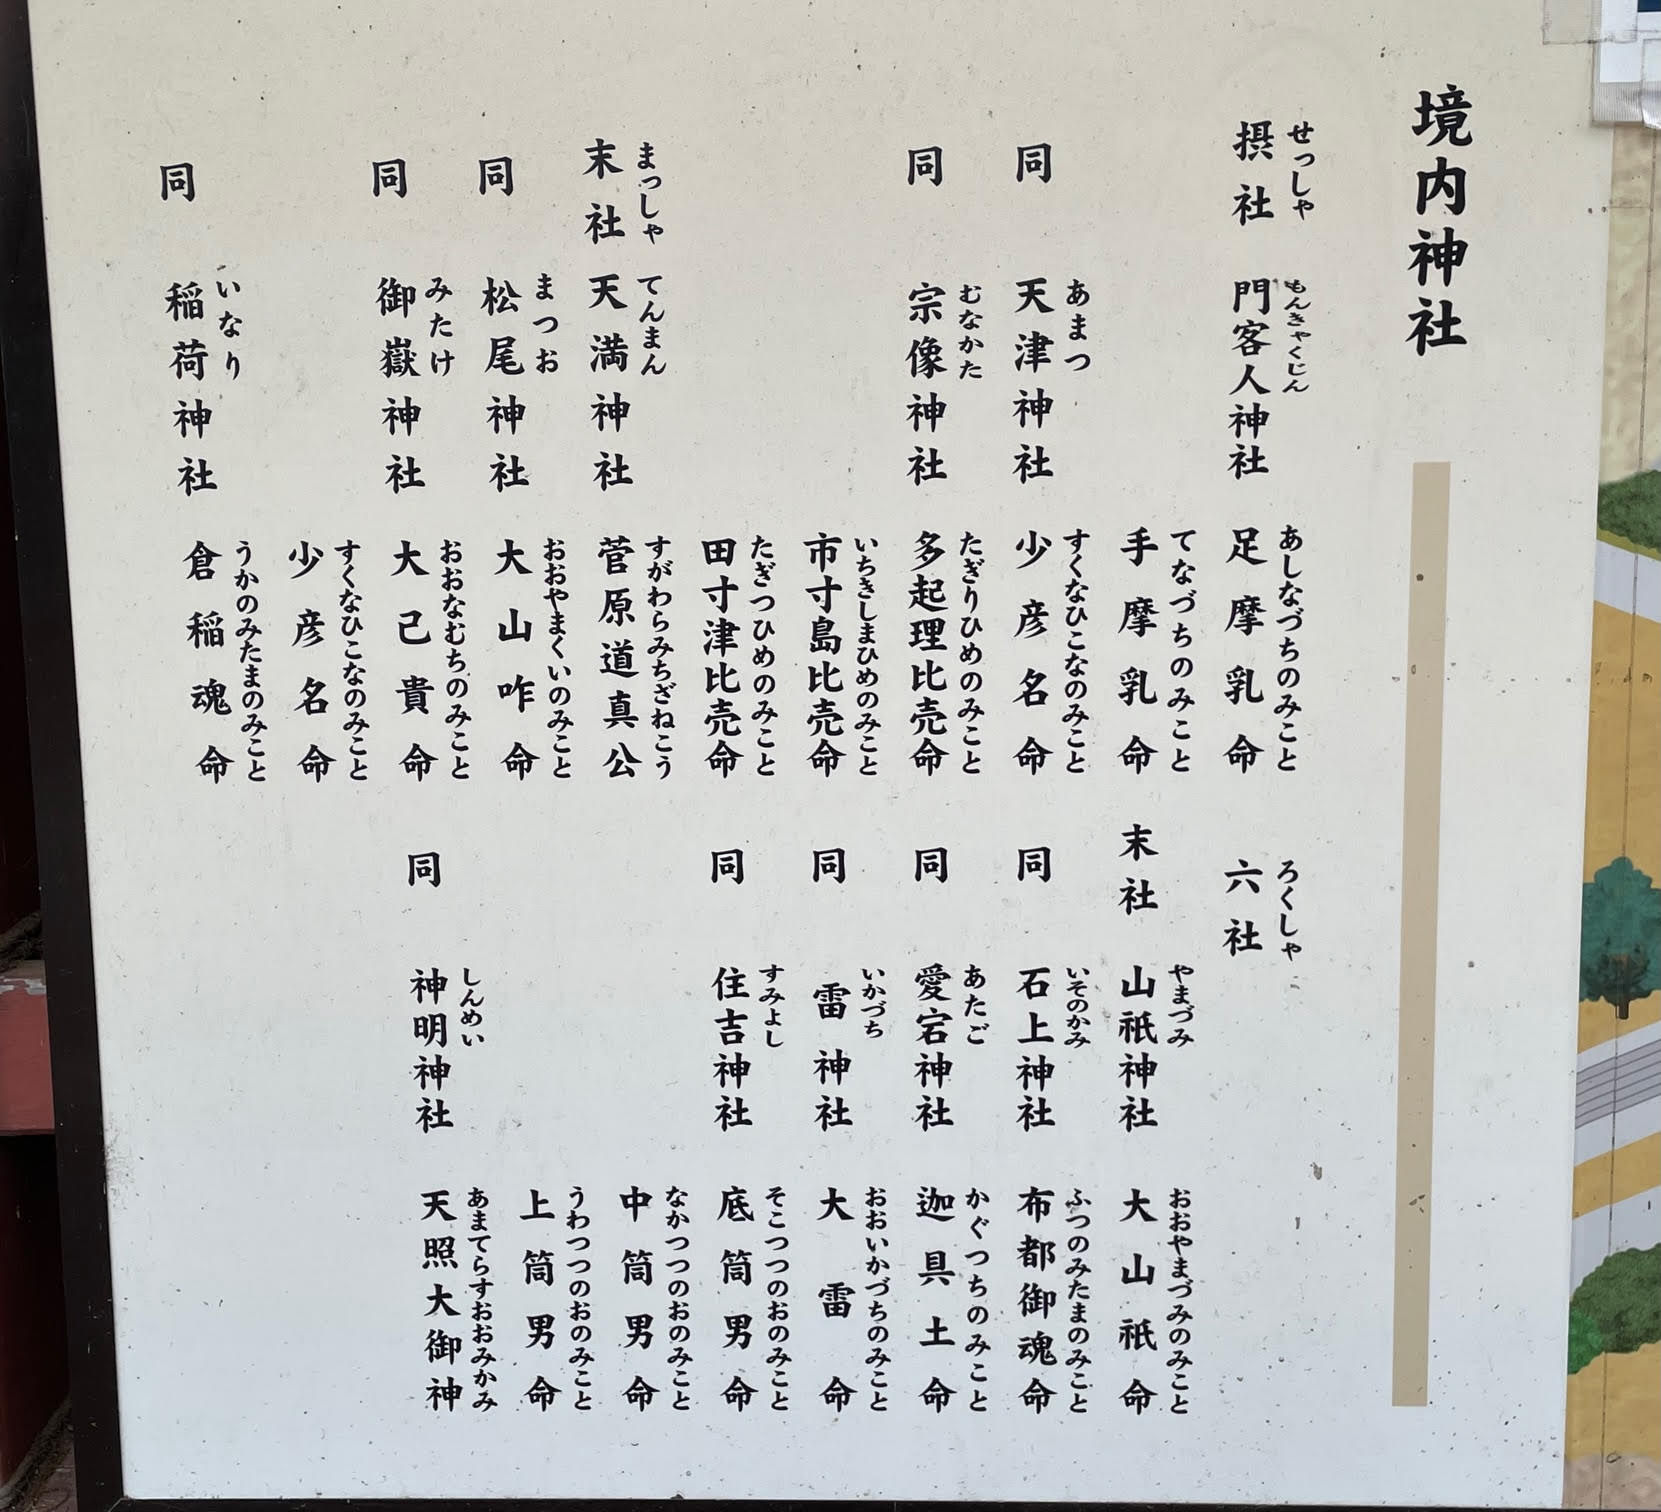 境内神社
せっしゃ もんきゃくじん あしなづちのみこと
摂社 門客人神社 足摩乳命
てなづちのみこと
手摩乳命
あまつ すくなひこなのみこと
同 天津神社 少彦名命
むなかた たぎりひめのみこと
同 宗像神社 多起理比売命
いちきしまひめのみこと
市寸島比売命
たぎつひめのみこと
田寸津比売命
まっしゃ てんまん すがわらみちざねこう
末社 天満神社 菅原道真公
まつお おおやまくいのみこと
同 松尾神社 大山咋命
みたけ おおなむちのみこと
同 御嶽神社 大己貴命
すくなひこなのみこと
少彦名命
いなり うかのみたまのみこと
同 稲荷神社 倉稲魂命
ろくしゃ
六社
やまづみ おおやまづみのみこと
末社 山祇神社 大山祇命
いそのかみ ふつのみたまのみこと
同 石上神社 布都御魂命
あたご かぐつちのみこと
同 愛宕神社 迦具土命
いかづち おおいかづちのみこと
同 雷神社 大雷命
すみよし そこつつのおのみこと
同 住吉神社 底筒男命
なかつつのおのみこと
中筒男命
うわつつのおのみこと
上筒男命
しんめい あまてらすおおみかみ
同 神明神社 天照大御神